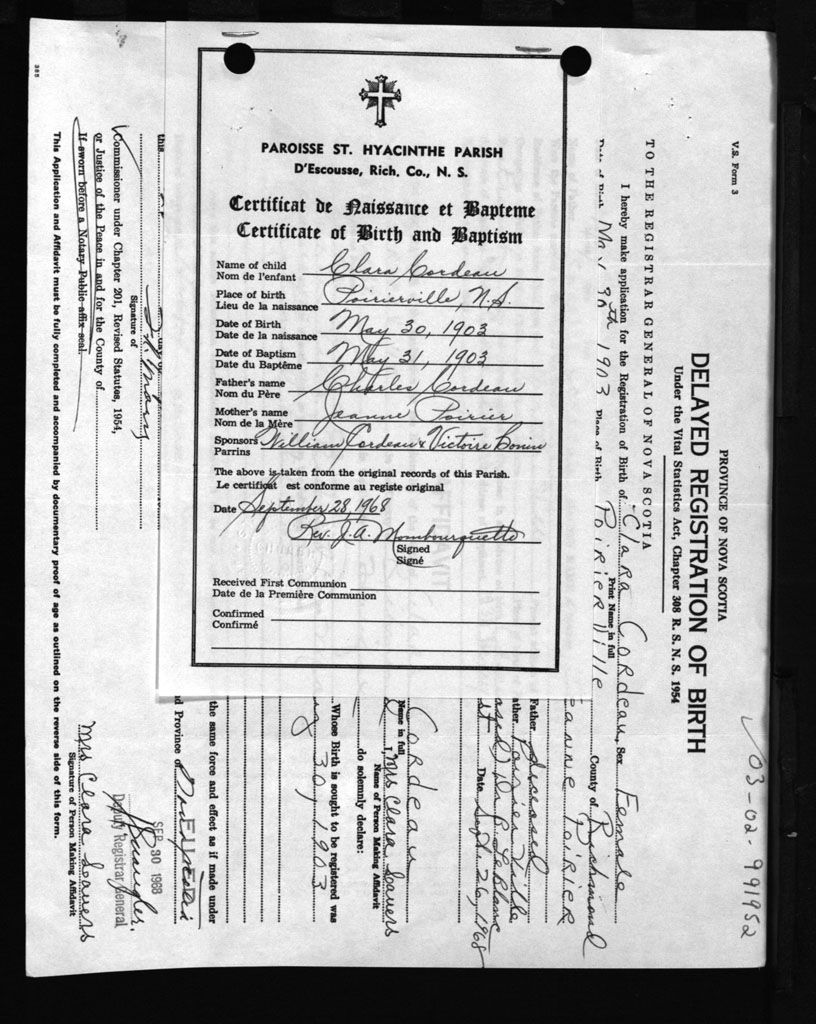 PAROISSE ST. HYACINTHE PARISH
D'Escousse, Rich. Co., N. S.
Certificat de Naissance et Bapteme
Certificate of Birth and Baptism
Name of child
Nom de l'enfant Clara Cordeau
Place of birth
Lieu de la naissance Poirierville, N.S.
Date of Birth
Date de la naissance May 30, 1903
Date of Baptism
Date du Baptême May 31, 1903
Father's name
Nom du Père Charles Cordeau
Mother's name
Nom de la Mère Jeanne Poirier
Sponsors
Parrins William Cordeau & Victoire Bonin
The above is taken from the original records of this Parish.
Le certificat est conforme au registe original
Date September 28, 1968
Rev. J.A. Mombourquette
Signed
Signé
Received First Communion
Date de la Première Communion
Confirmed
Confirmé
03-02-991952
V.S. Form 3
PROVINCE OF NOVA SCOTIA
DELAYED REGISTRATION OF BIRTH
Under the Vital Statistics Act, Chapter 308 R. S. N. S. 1954
TO THE REGISTRAR GENERAL OF NOVA SCOTIA
I hereby make application for the Registration of Birth of Clara Cordeau, Sex Female
Print Name in full
Date of Birth May 30th 1903 Place of Birth PoirierVille County of Richmond
eanne Poirier
Father deceased
Date Sept. 26, 1968
Cordeau
Name in full
I, Mrs Clara Sauers
Name of Person Making Affidavit
do solemnly declare:
Whose Birth is sought to be registered was
30, 1903
the same force and effect as if made under
d Province of
this
Signature of
Commissioner under Chapter 201, Revised Statutes, 1954,
or Justice of the Peace in and for the County of
If sworn before a Notary Public affix seal.
SEP 30 1968
Deputy Registrar General
Mrs Clara Sauers
Signature of Person Making Affidavit
This Application and Affidavit must be fully completed and accompanied by documentary proof of age as outlined on the reverse side of this form.